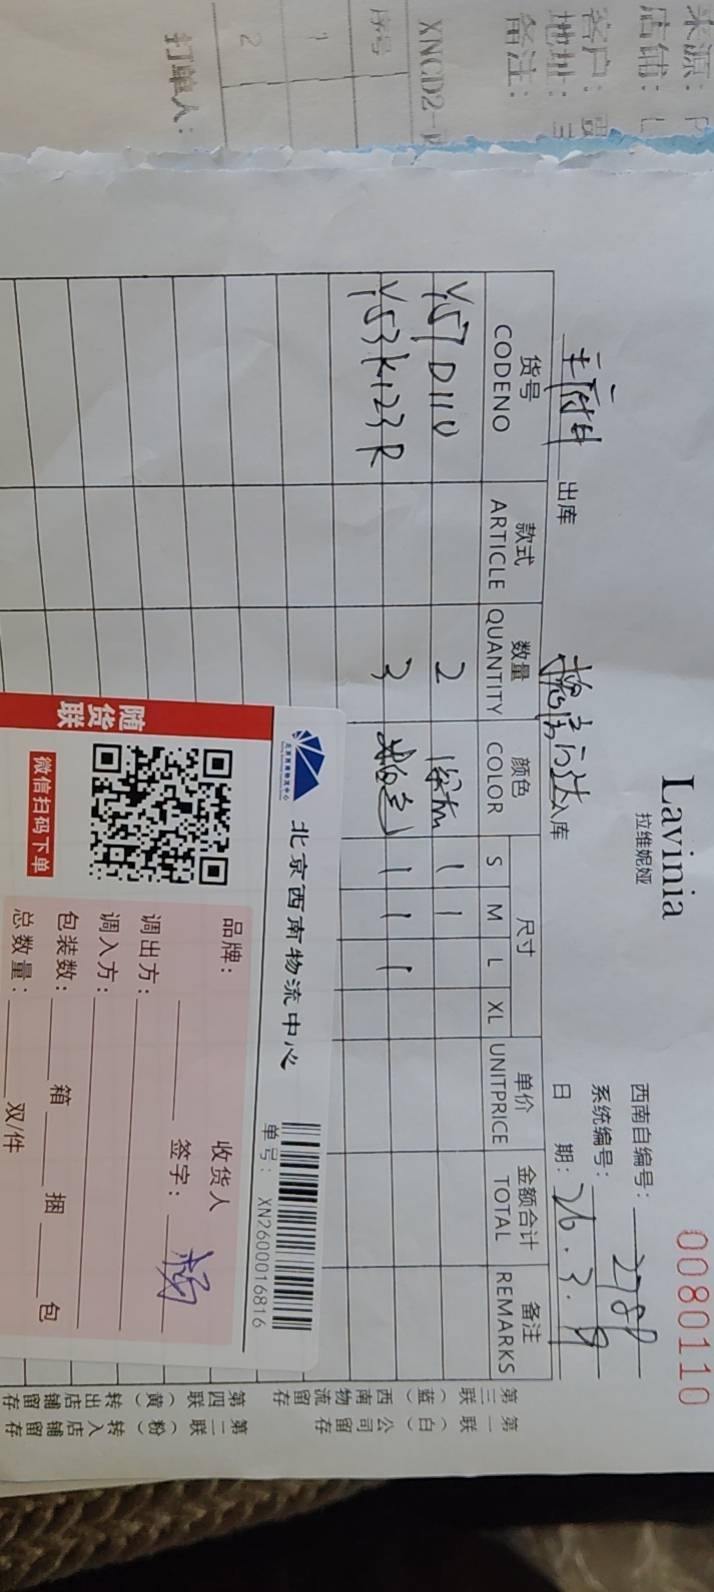 来源：
店铺：
客户：
地址：
备注：
XNCD2-
序号
1
2
打单人：
Lavinia
拉维妮娅
0080110
西南自编号：2789
系统编号：
日 期：26.3.9
出库
入库
货号 款式 数量 颜色 尺寸 单价 金额合计 备注
CODENO ARTICLE QUANTITY COLOR S M L XL UNITPRICE TOTAL REMARKS
Y57D110 2 1 1
Y53K123R 3 1 1 1
第一联（白）公司留存
第三联（蓝）西南物流留存
第二联（粉）转入店铺留存
第四联（黄）转出店铺留存
北京西南物流中心
单号：XN2600016816
随货联
微信扫码下单
品牌：
收货人
签字：杨
调出方：
调入方：
包装数： 箱 捆 包
总数量： 双/件